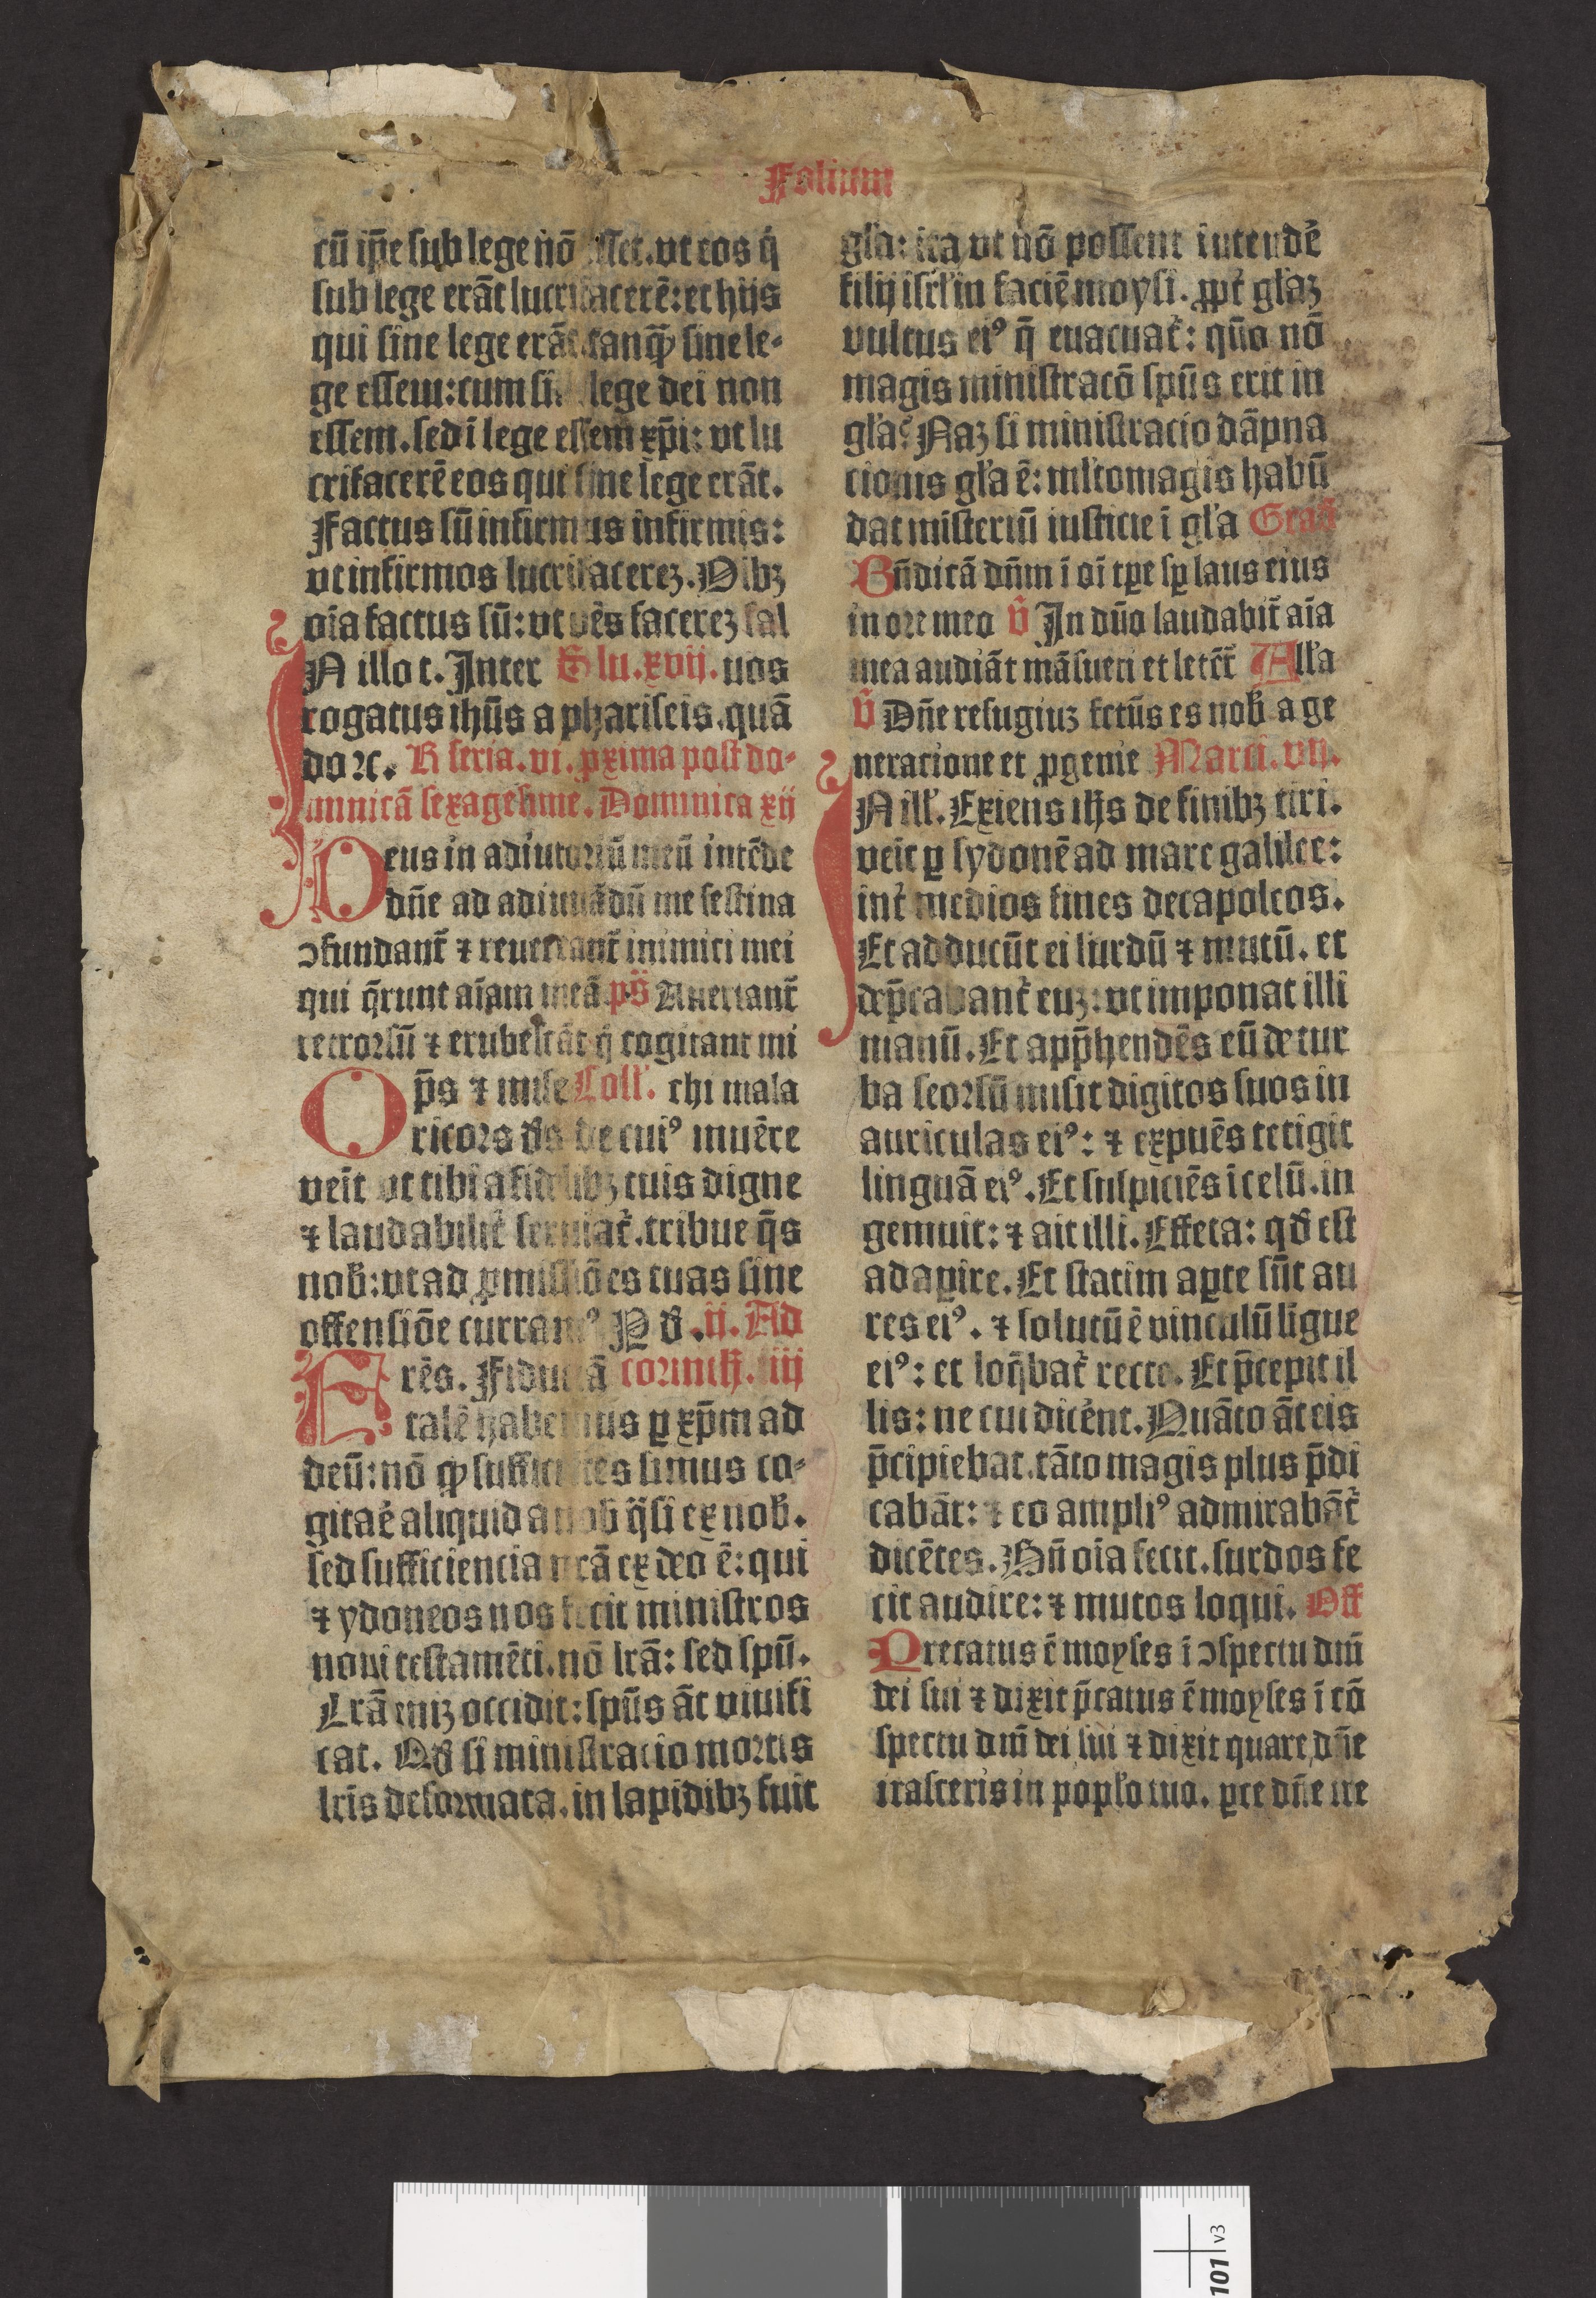 Folium
cū ip̄e sub lege nō esset. vt eos q̇
sub lege erāt lucrifacerē: et hijs
qui sine lege erāt tanq̄ sine le-
ge essem: cum sine lege dei non
essem. sed ī lege essem xp̄i: vt lu
crifacerē eos qui sine lege erāt.
Factus sū infirmus infirmis:
vt infirmos lucrifacerez. Oībz
oīa factus sū: vt oēs facerez sal
N illo t. Inter S lu. xvij. uos
rogatus ihūs a phariseis. quā
do ⁊c. R feria. vi. ꝓxima post do-
minicā sexagesime. Dominica xij
Deus in adiutoriū meū intēde
dn̄e ad adiuuādū me festina
ɔfundant̄ ⁊ reuereant̄ inimici mei
qui q̄runt aīam meā ps̄ Auertant̄
retrorsū ⁊ erubescāt q̇ cogitant mi
Op̄s ⁊ mise Coll'. chi mala
ricors ds̄ de cuiꝰ munēre
veīt vt tibi a fidelibz tuis digne
⁊ laudabilit̄ seruiat̄. tribue q̄s
nob̄: vt ad ꝓmissiōes tuas sine
offensiōe curramꝰ P d̄. ij. Ad
Frēs. Fiduciā corinth. iij
talē habemus ꝑ xp̄m ad
deū: nō ꝙ sufficiētes simus co-
gitaē aliquid a nob̄ q̄si ex nob̄.
sed sufficiencia nrā ex deo ē: qui
⁊ ydoneos nos fecit ministros
noui testamēti. nō lrā: sed spū.
Lrā eniz occidit: spūs āt viuifi
cat. Qd̄ si ministracio mortis
lris deformata. in lapidibz fuit
gl'a: ita vt nō possent intendē
filij isrl' in faciē moysi. ꝓpt̄ gl'az
vultus eiꝰ q̄ euacuat̄: qūo nō
magis ministracō spūs erit in
gl'a? Naz si ministracio dāpna
cionis gl'a ē: ml'tomagis habū
dat misteriū iusticie ī gl'a Grad̄
Bn̄dicā dn̄m ī oī tꝑe sꝑ laus eius
in ore meo v̄ In dn̄o laudabit̄ aīa
mea audiāt māsueti et letēt̄ All'a
v̄ Dn̄e refugiuz fctūs es nob̄ a ge
neracione et ꝓgenie Marci. vij.
IN ill'. Exiens ihs de finibz tiri.
veīt ꝑ sydonē ad mare galilee:
int̄ medios fines decapoleos.
Et adducūt ei surdū ⁊ mutū. et
dep̄cabant̄ euz: vt imponat illi
manū. Et app̄hendēs eū de tur
ba seorsū misit digitos suos in
auriculas eiꝰ: ⁊ expuēs tetigit
linguā eiꝰ. Et suspiciēs ī celū. in
gemuit: ⁊ ait illi. Effeta: qd̄ est
adaꝑire. Et statim aꝑte sūt au
res eiꝰ. ⁊ solutū ē vinculū ligue
eiꝰ: et loq̄bat̄ recte. Et p̄cepit il
lis: ne cui dicēnt. Quāto āt eis
p̄cipiebat. tāto magis plus p̄di
cabāt: ⁊ eo ampliꝰ admirabāt̄
dicētes. Bn̄ oīa fecit. surdos fe
cit audire: ⁊ mutos loqui. Off
Precatus ē moyses ī ɔspectu dn̄i
dei sui ⁊ dixit p̄catus ē moyses ī cō
spectu dn̄i dei sui ⁊ dixit quare dn̄e
irasceris in popl'o tuo. ꝑce dn̄e ire